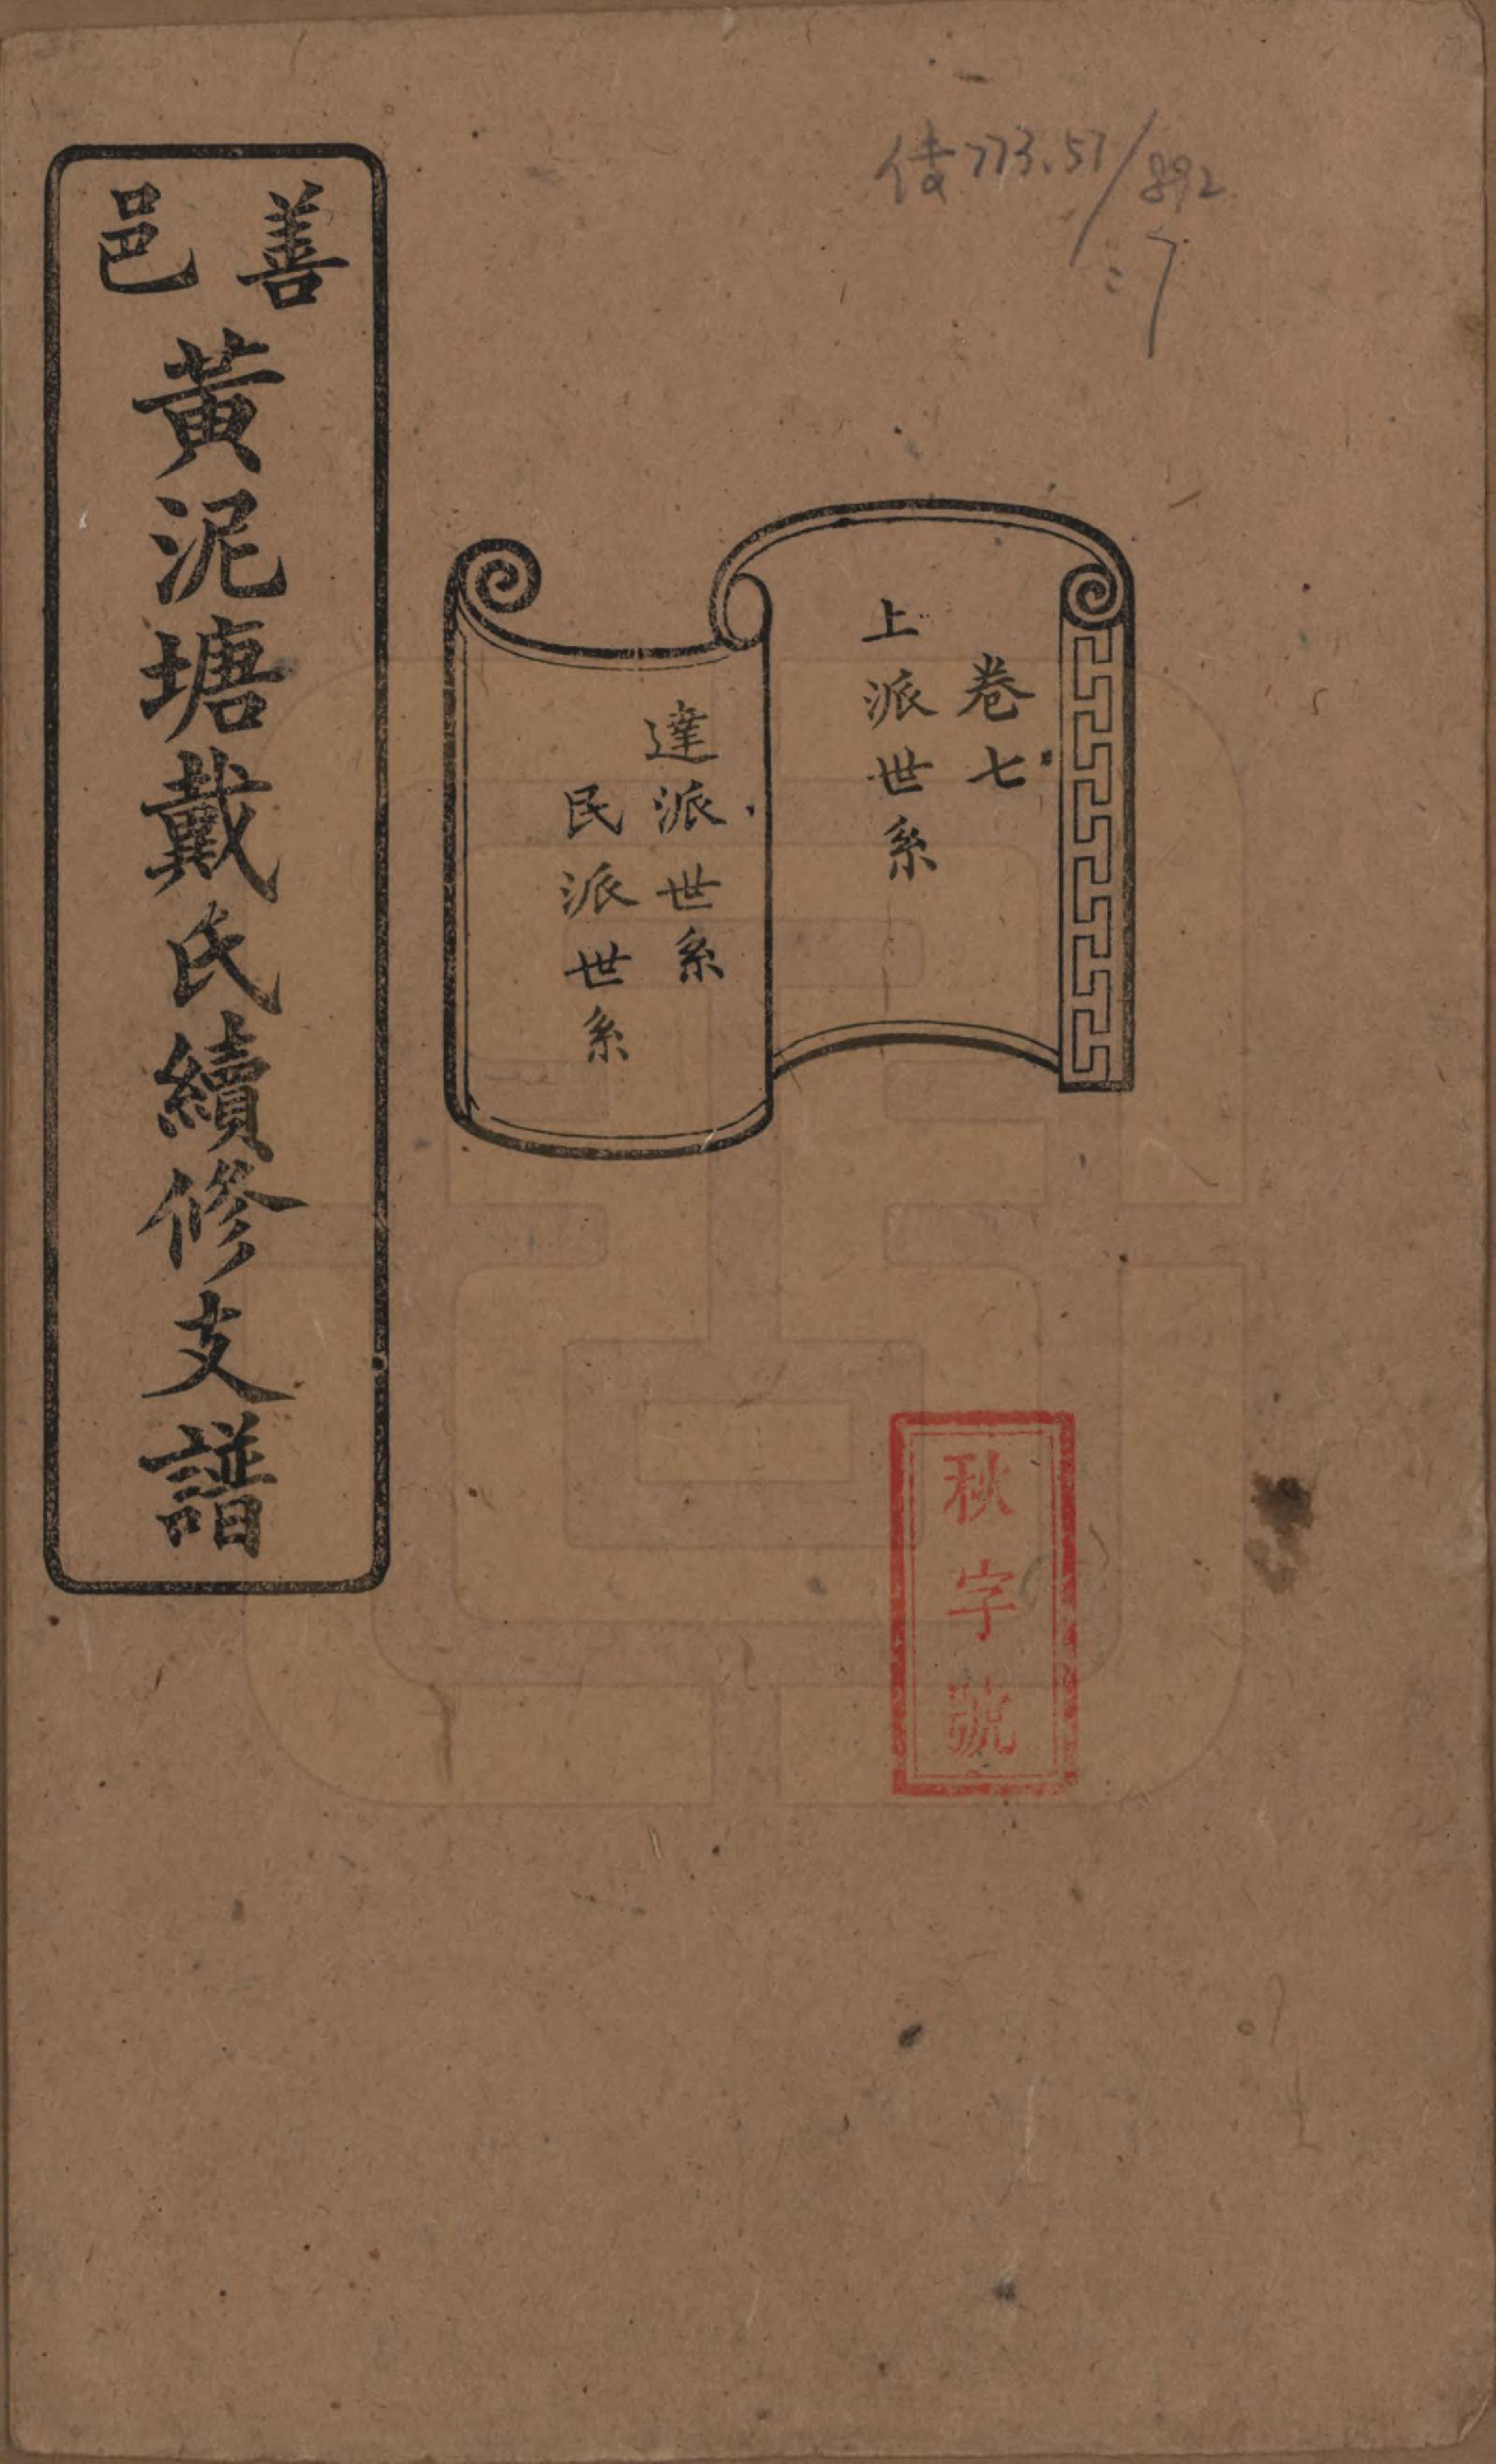 善邑
黃泥塘戴氏續修支譜
卷七
上派世系
達派世系
民派世系
秋字號
773.57/892
:7